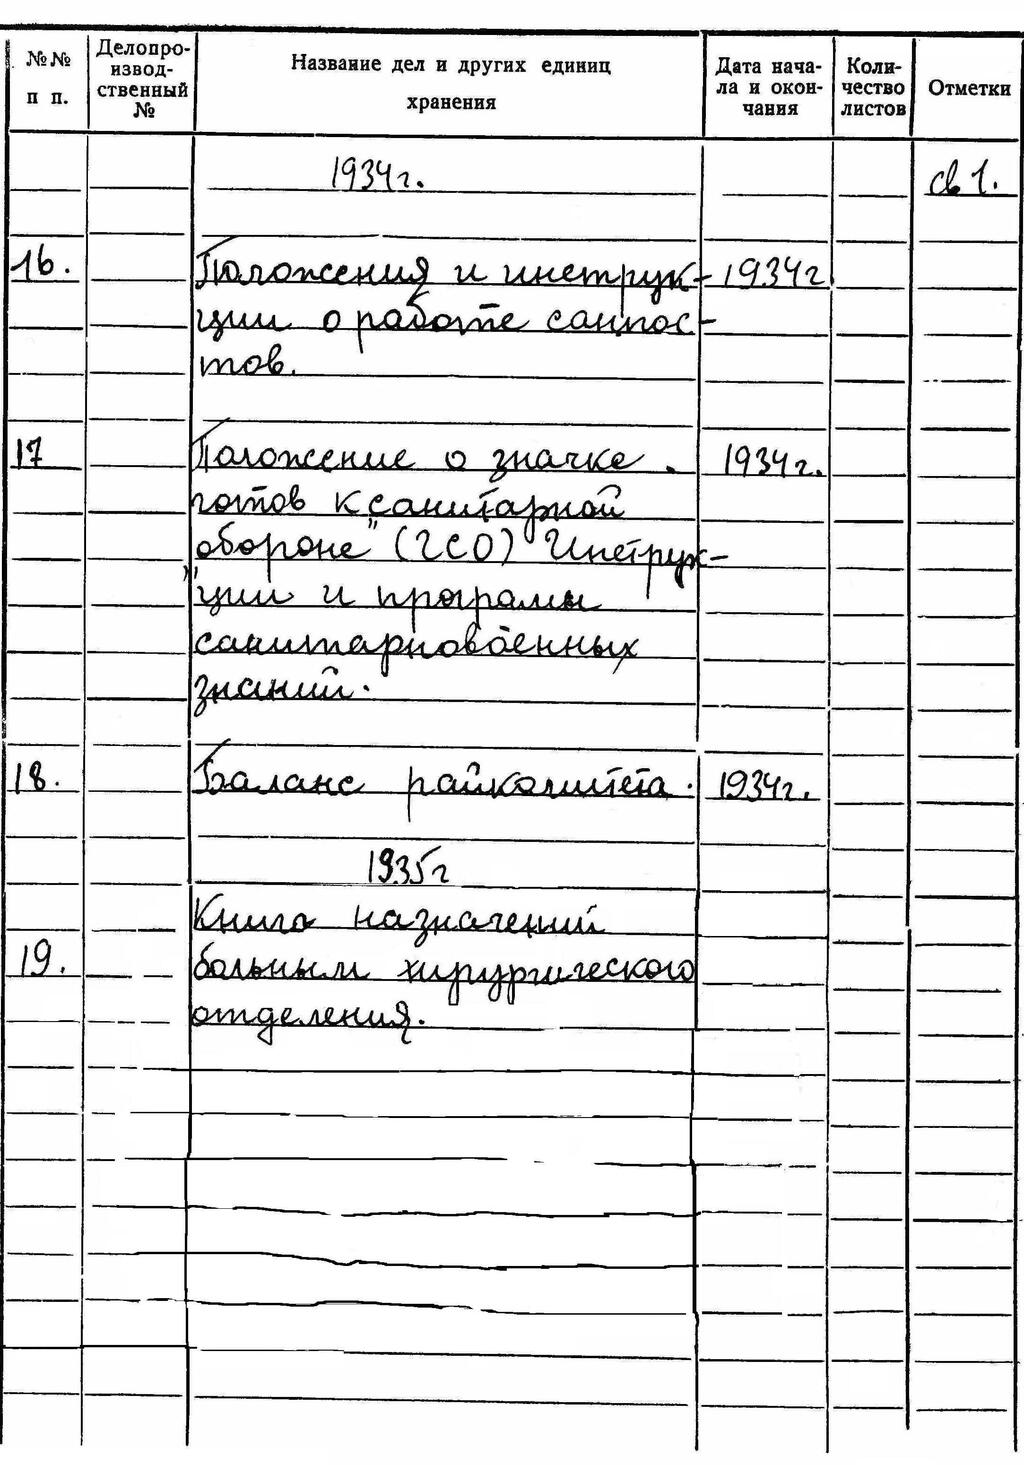 №№ п п.
Делопро-
извод-
ственный
№
Название дел и других единиц
хранения
Дата нача-
ла и окон-
чания
Коли-
чество
листов
Отметки
1934г. св 1.
16. Положения и инструк- 1934г
ции о работе санпос-
тов.
17 Положение о значке 1934г.
готов к санитарной
обороне" (ГСО) Инструк-
ции и програмы
санитарновоенных
знаний.
18. Баланс райкомитета. 1934г.
1935г
Книга назначений
19. больным хирургического
отделения.